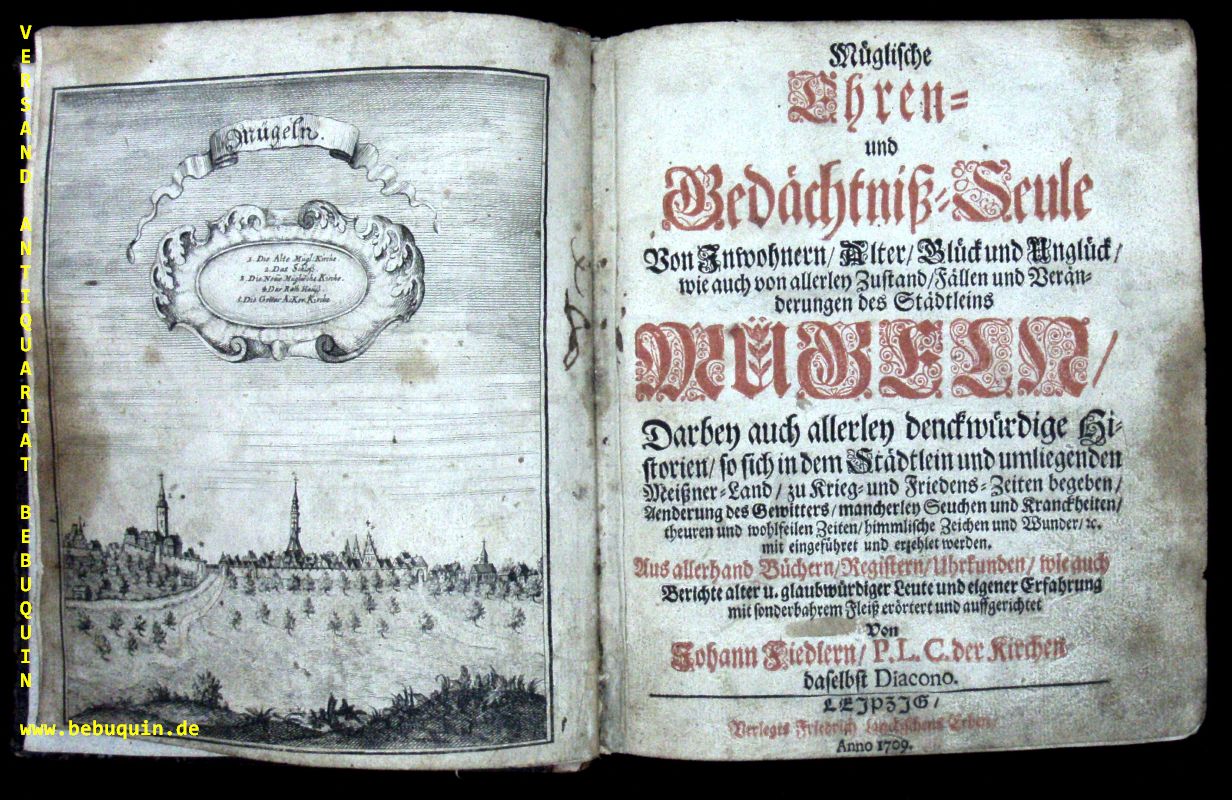 VERSAND ANTIQUARIAT BEBUQUIN
www.bebuquin.de
Mügeln.
1. Die Alte Mügl. Kirche
2. Das Schloß.
3. Die Neue Müglische Kirche.
4. Das Rath Hauß.
5. Die Gottes Acker Kirche
Müglische
Ehren-
und
Gedächtniß-Seule
Von Inwohnern/ Alter/ Glück und Unglück/
wie auch von allerley Zustand/ Fällen und Verän-
derungen des Städtleins
MÜGELN/
Darbey auch allerley denckwürdige Hi-
storien/ so sich in dem Städtlein und umliegenden
Meißner-Land/ zu Krieg- und Friedens-Zeiten begeben/
Aenderung des Gewitters/ mancherley Seuchen und Kranckheiten/
theuren und wohlfeilen Zeiten/ himmlische Zeichen und Wunder/ ꝛc.
mit eingeführet und erzehlet werden.
Aus allerhand Büchern/ Registern/ Uhrkunden/ wie auch
Berichte alter u. glaubwürdiger Leute und eigener Erfahrung
mit sonderbahrem Fleiß erörtert und auffgerichtet
Von
Johann Fiedlern/ P. L. C. der Kirchen
daselbst Diacono.
LEIPZIG/
Verlegts Friedrich Lanckischens Erben/
Anno 1709.